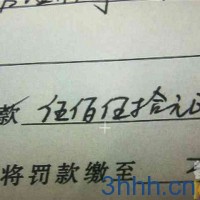 款 伍佰伍拾元正
将罚款缴至
3hhh.cn